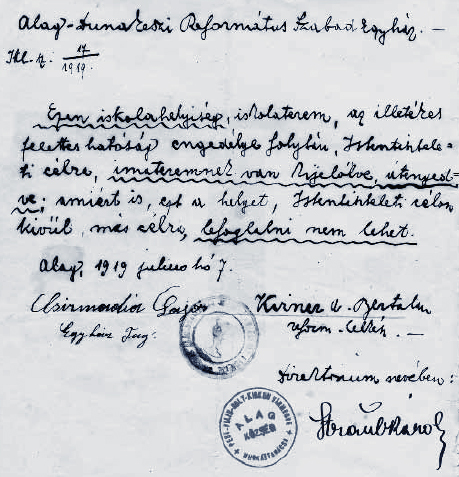 Alag-Dunakeszi Református Szabad Egyház. —
Ikt. sz. 17/1919.
Ezen iskolahelyiség, iskolaterem, az illetékes
felettes hatóság engedélye folytán, Istentisztele-
ti célra, imateremnek van kijelölve, átenged-
ve; amiért is, ezt a helyet, Istentiszteleti célon
kivül, más célra, lefoglalni nem lehet.
Alag, 1919 julius hó 7.
Csizmadia Lajos
Egyház Tag.
Kirner A. Bertalan
reform. lelkész. —
Direktorium nevében:
ALAG
KÖZSÉG
Straub Károly